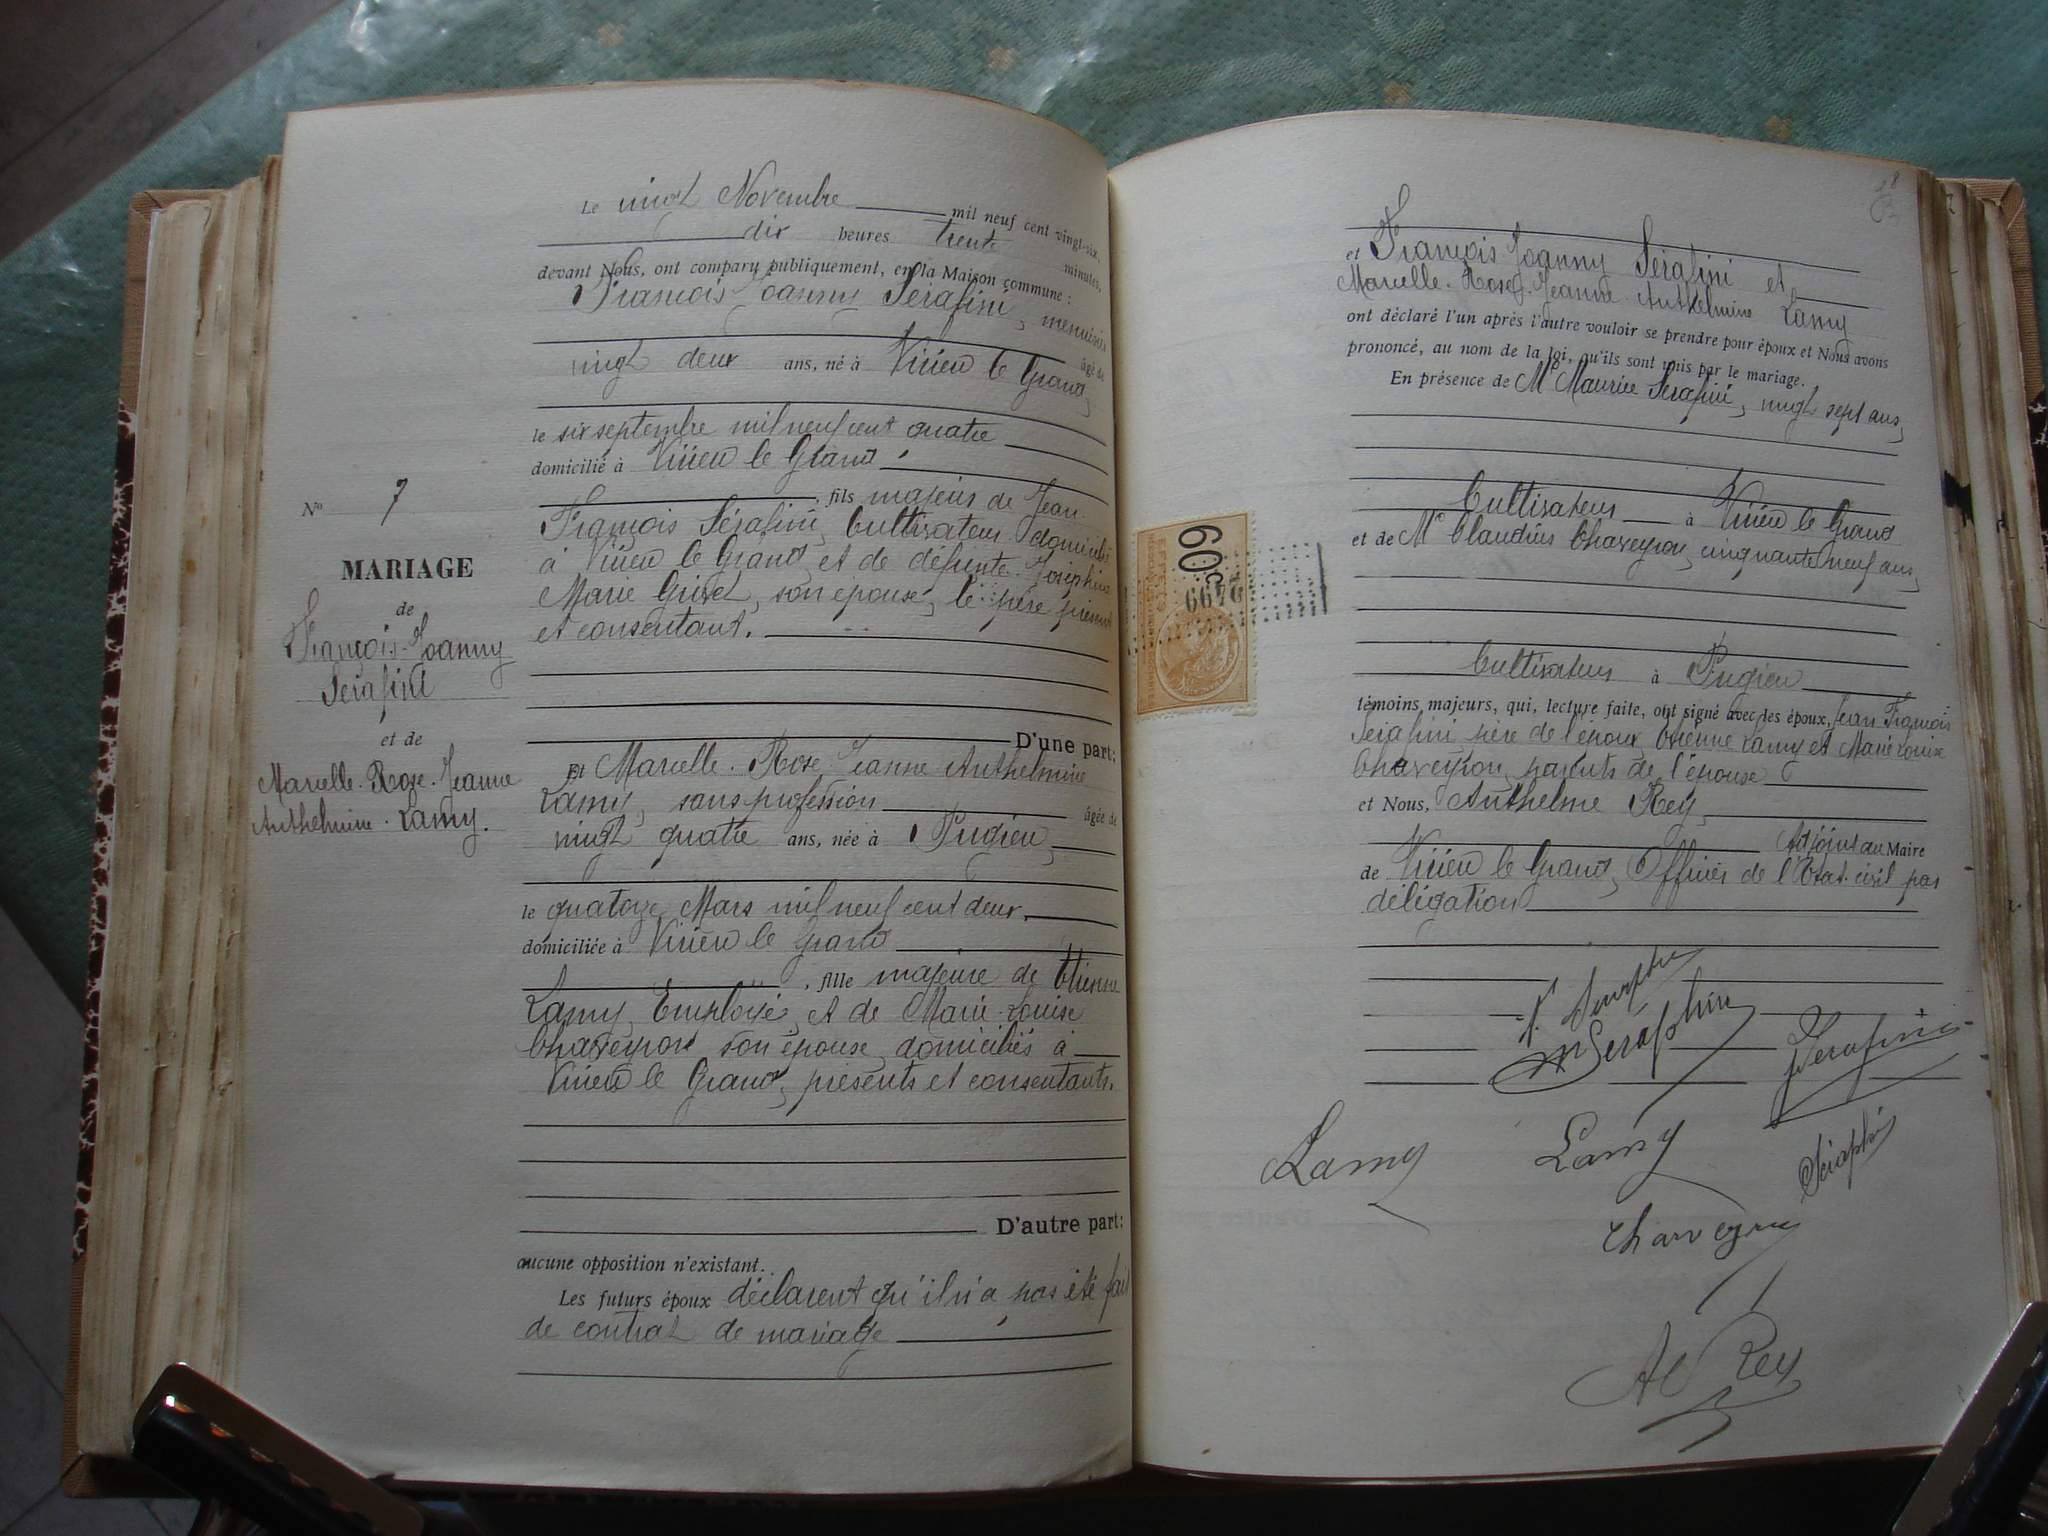 Nº 7
MARIAGE
de
François-Joanny
Sérafini
et de
Marcelle-Rose-Jeanne
Anthelmine Lamy.
Le vingt Novembre mil neuf cent vingt-six,
dix heures trente minutes,
devant Nous, ont comparu publiquement, en la Maison commune :
François Joanny Sérafini, menuisier
âgé de
vingt deux ans, né à Virieu le Grand,
le six septembre mil neuf cent quatre
domicilié à Virieu le Grand,
, fils majeur de Jean
François Sérafini, Cultivateur domicilié
à Virieu le Grand et de défunte Joséphine
Marie son épouse, le père présent
et consentant.
D'une part:
Et Marcelle Rose Jeanne Anthelmine
Lamy, sans profession âgée de
vingt quatre ans, née à Pugieu,
le quatorze Mars mil neuf cent deux,
domiciliée à Virieu le Grand
, fille majeure de Etienne
Lamy, Employé, et de Marie-Louise
Chaveyron son épouse, domiciliés à
Virieu le Grand, présents et consentants.
D'autre part:
aucune opposition n'existant.
Les futurs époux déclarent qu'il n'a pas été fait
de contrat de mariage
et François Joanny Sérafini et
Marcelle-Rose-Jeanne Anthelmine Lamy
ont déclaré l'un après l'autre vouloir se prendre pour époux et Nous avons
prononcé, au nom de la loi, qu'ils sont unis par le mariage.
En présence de Mr Maurice Sérafini, vingt sept ans,
Cultivateur à Virieu le Grand
et de Mr Claudius Chaveyron, cinquante neuf ans,
Cultivateur à Pugieu
témoins majeurs, qui, lecture faite, ont signé avec les époux, Jean François
Sérafini père de l'époux, Etienne Lamy et Marie Louise
Chaveyron, parents de l'épouse
et Nous, Anthelme Rey,
Adjoint au Maire
de Virieu le Grand, Officier de l'Etat-civil par
délégation
60c
2499
EFFETS
M Séraphin
Sérafini
Lamy
Lamy
Séraphin
Charveyron
A Rey